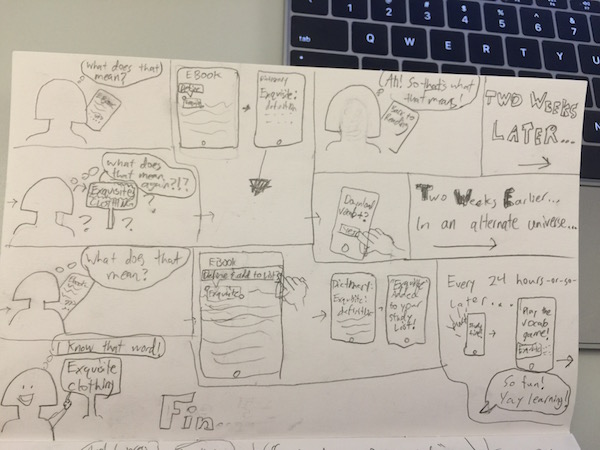 What does that
mean?
EBook
EBook
Define
Exquisite:
definition
Ah! So that's what
that means!
Back to
Reading
TWO WEEKS
LATER...
what does
that mean
again?!?
Exquisite
clothing
? ? ? ?
Download
vocab+?
Two Weeks Earlier...
In an alternate universe...
What does that
mean?
EBook
Define & add to list
Exquisite
Dictionary:
Exquisite:
definition
"Exquisite"
added
to your
study
List!
Every 24 hours-or-so-
Later....
Play the
vocab
game!
So fun!
Yay learning!
I know that word!
Exquisite
clothing
Fin...
tab
Q W E R T Y
1 2 3 4 5 6 7